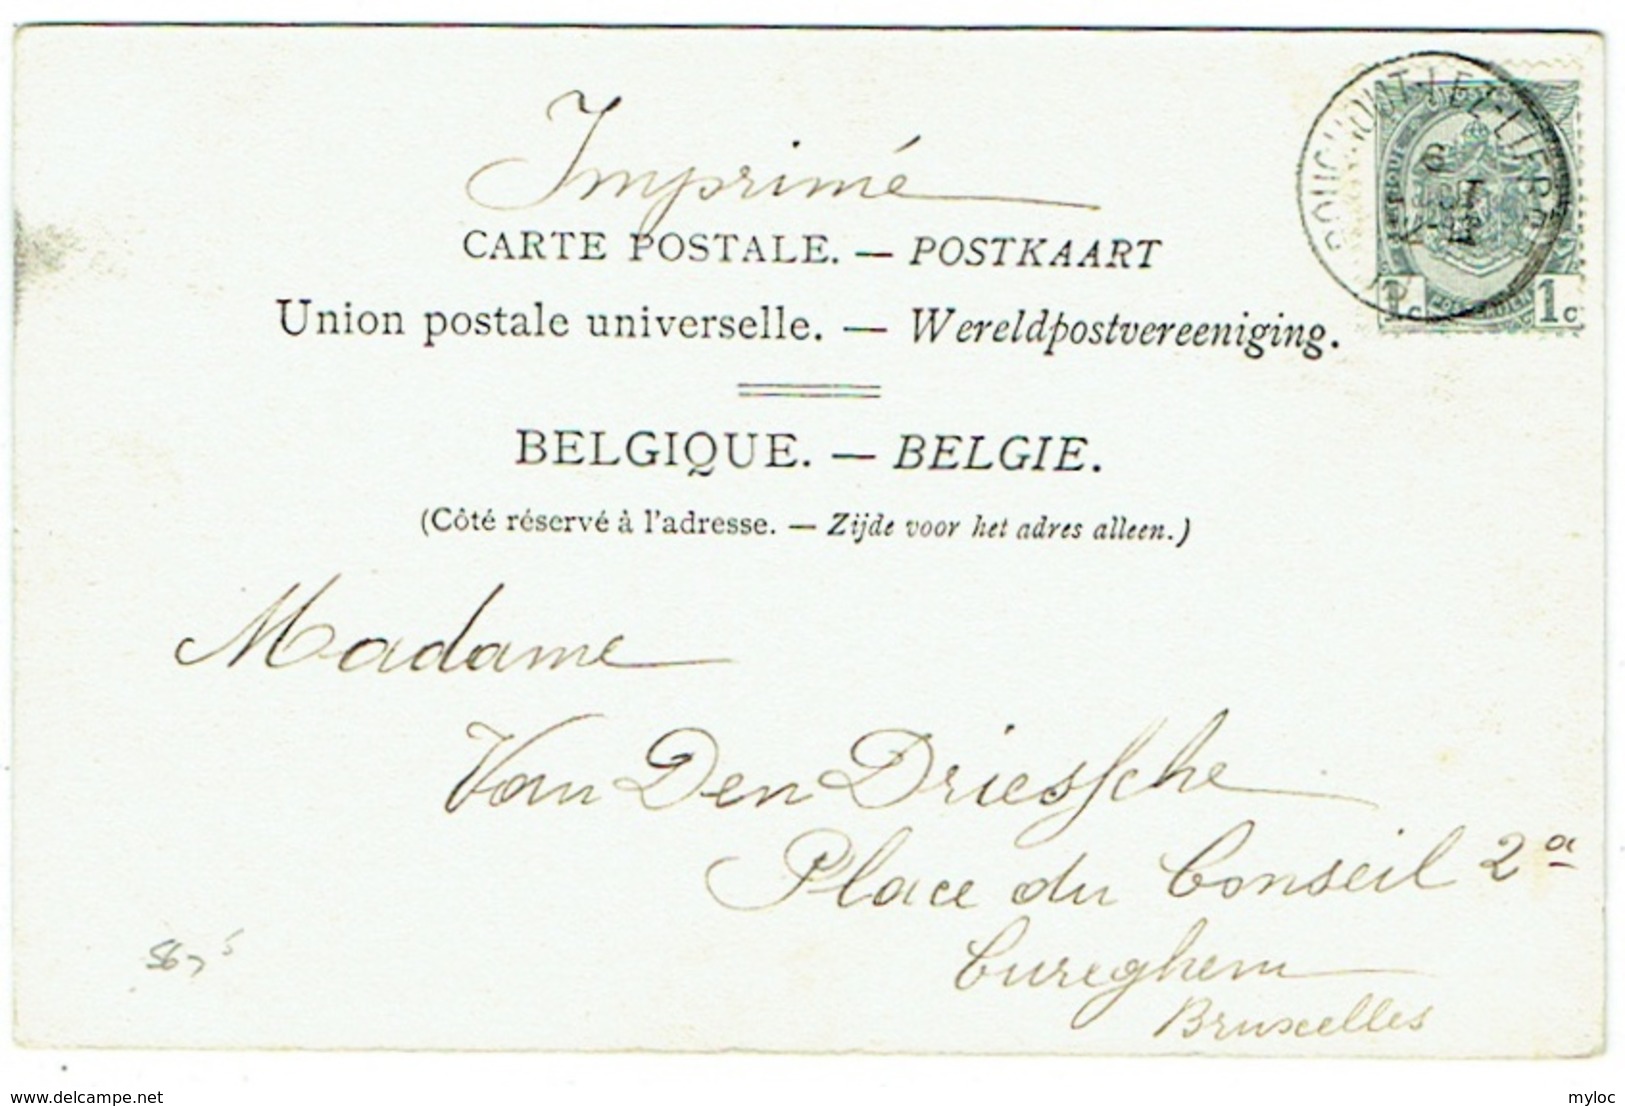 Imprimé
CARTE POSTALE. — POSTKAART
Union postale universelle. — Wereldpostvereeniging.
BELGIQUE. — BELGIE.
(Côté réservé à l'adresse. — Zijde voor het adres alleen.)
Madame
Van Den Driessche
Place du Conseil 2a
Cureghem
Bruxelles
1c 1c
www.delcampe.net
myloc